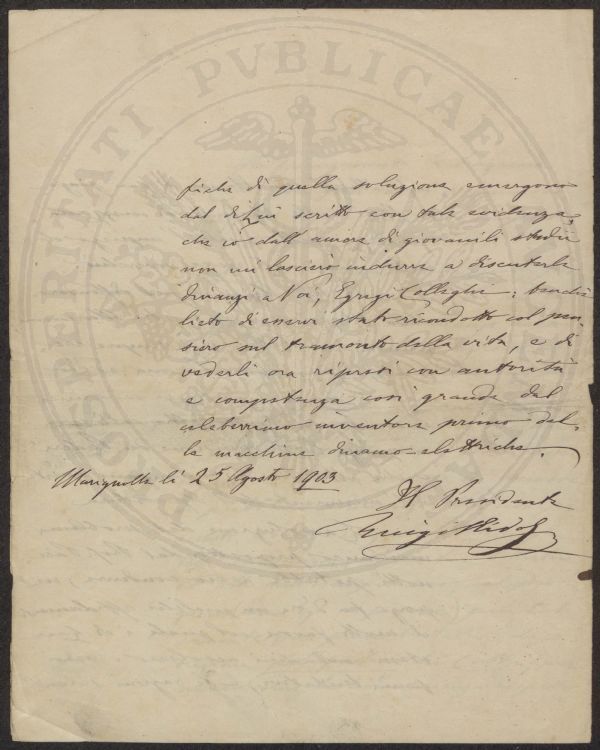 PROSPERITATI PVBLICAE
fiche di quella soluzione emergono
dal di Lui scritto con tale evidenza,
che io dall'amore di giovanili studii
non mi lascierò indurre a discuterle
dinanzi a Voi, Egregi Colleghi;
lieto di essere stato ricondotto col pen-
siero sul tramonto della vita, e di
vederli ora ripresi con autorità
e competenza così grande dal
celeberrimo inventore primo del-
le macchine dinamo-elettriche.
Marignolle li 25 Agosto 1903
Il Presidente
Luigi Ridolfi